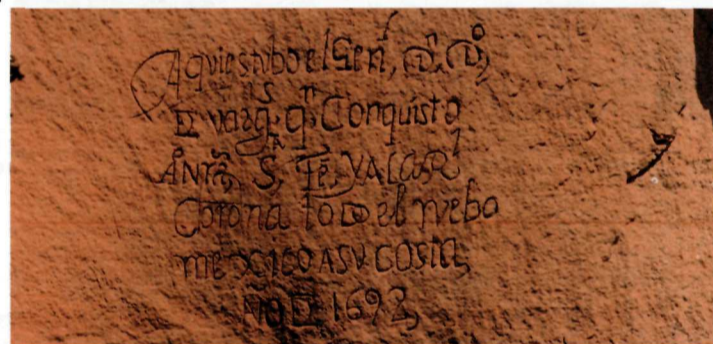 Aqui estubo el Genl, Dn. Do,
De vargs, qn. Conquisto
A Nrã. S. Fe, Y A la Rl
Corona todo el nuebo
mexico A SV COSta,
Año De 1692,